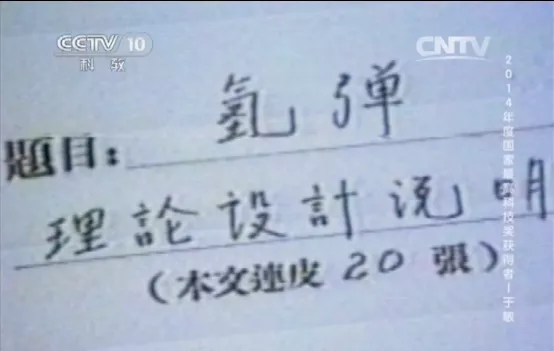 CCTV 10
科教
CNTV
2014年度国家最高科技奖获得者—于敏
氫弹
題目:
理論设計说明
(本文連皮 20 張)